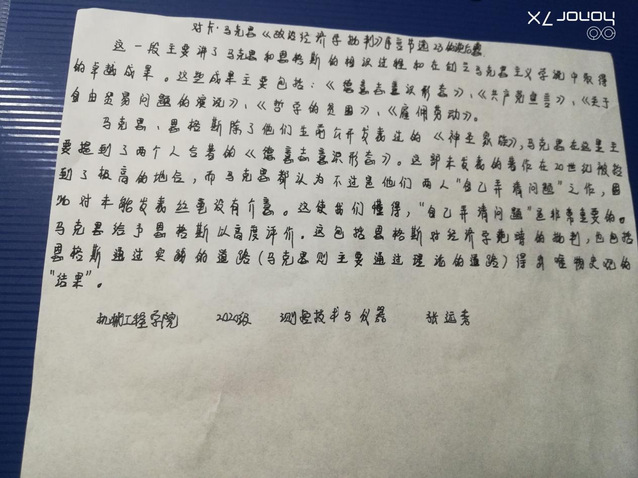 honor 7X
对卡·马克思《政治经济学批判》序言节选23的读后感
这一段主要讲了马克思和恩格斯的相识过程和在创立马克思主义学说中取得
的卓越成果。这些成果主要包括:《德意志意识形态》、《共产党宣言》、《关于
自由贸易问题的演说》、《哲学的贫困》、《雇佣劳动》。
马克思、恩格斯除了他们主要公开发表过的《神圣家族》,马克思在这里主
要提到了两个人合著的《德意志意识形态》。这部未发表的著作在20世纪被抬
到了极高的地位,而马克思都认为不过是他们两人"自己弄清问题"之作,因
此对未能发表丝毫没有介意。这使我们懂得,"自己弄清问题"是非常重要的。
马克思给予恩格斯以高度评价。这包括恩格斯对经济学范畴的批判,也包括
恩格斯通过实际的道路(马克思则主要通过理论的道路)得出唯物史观的
"结果"。
机械工程学院 2020级 测控技术与仪器 张运